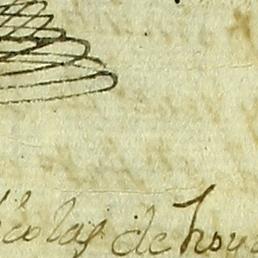 colas de hoy